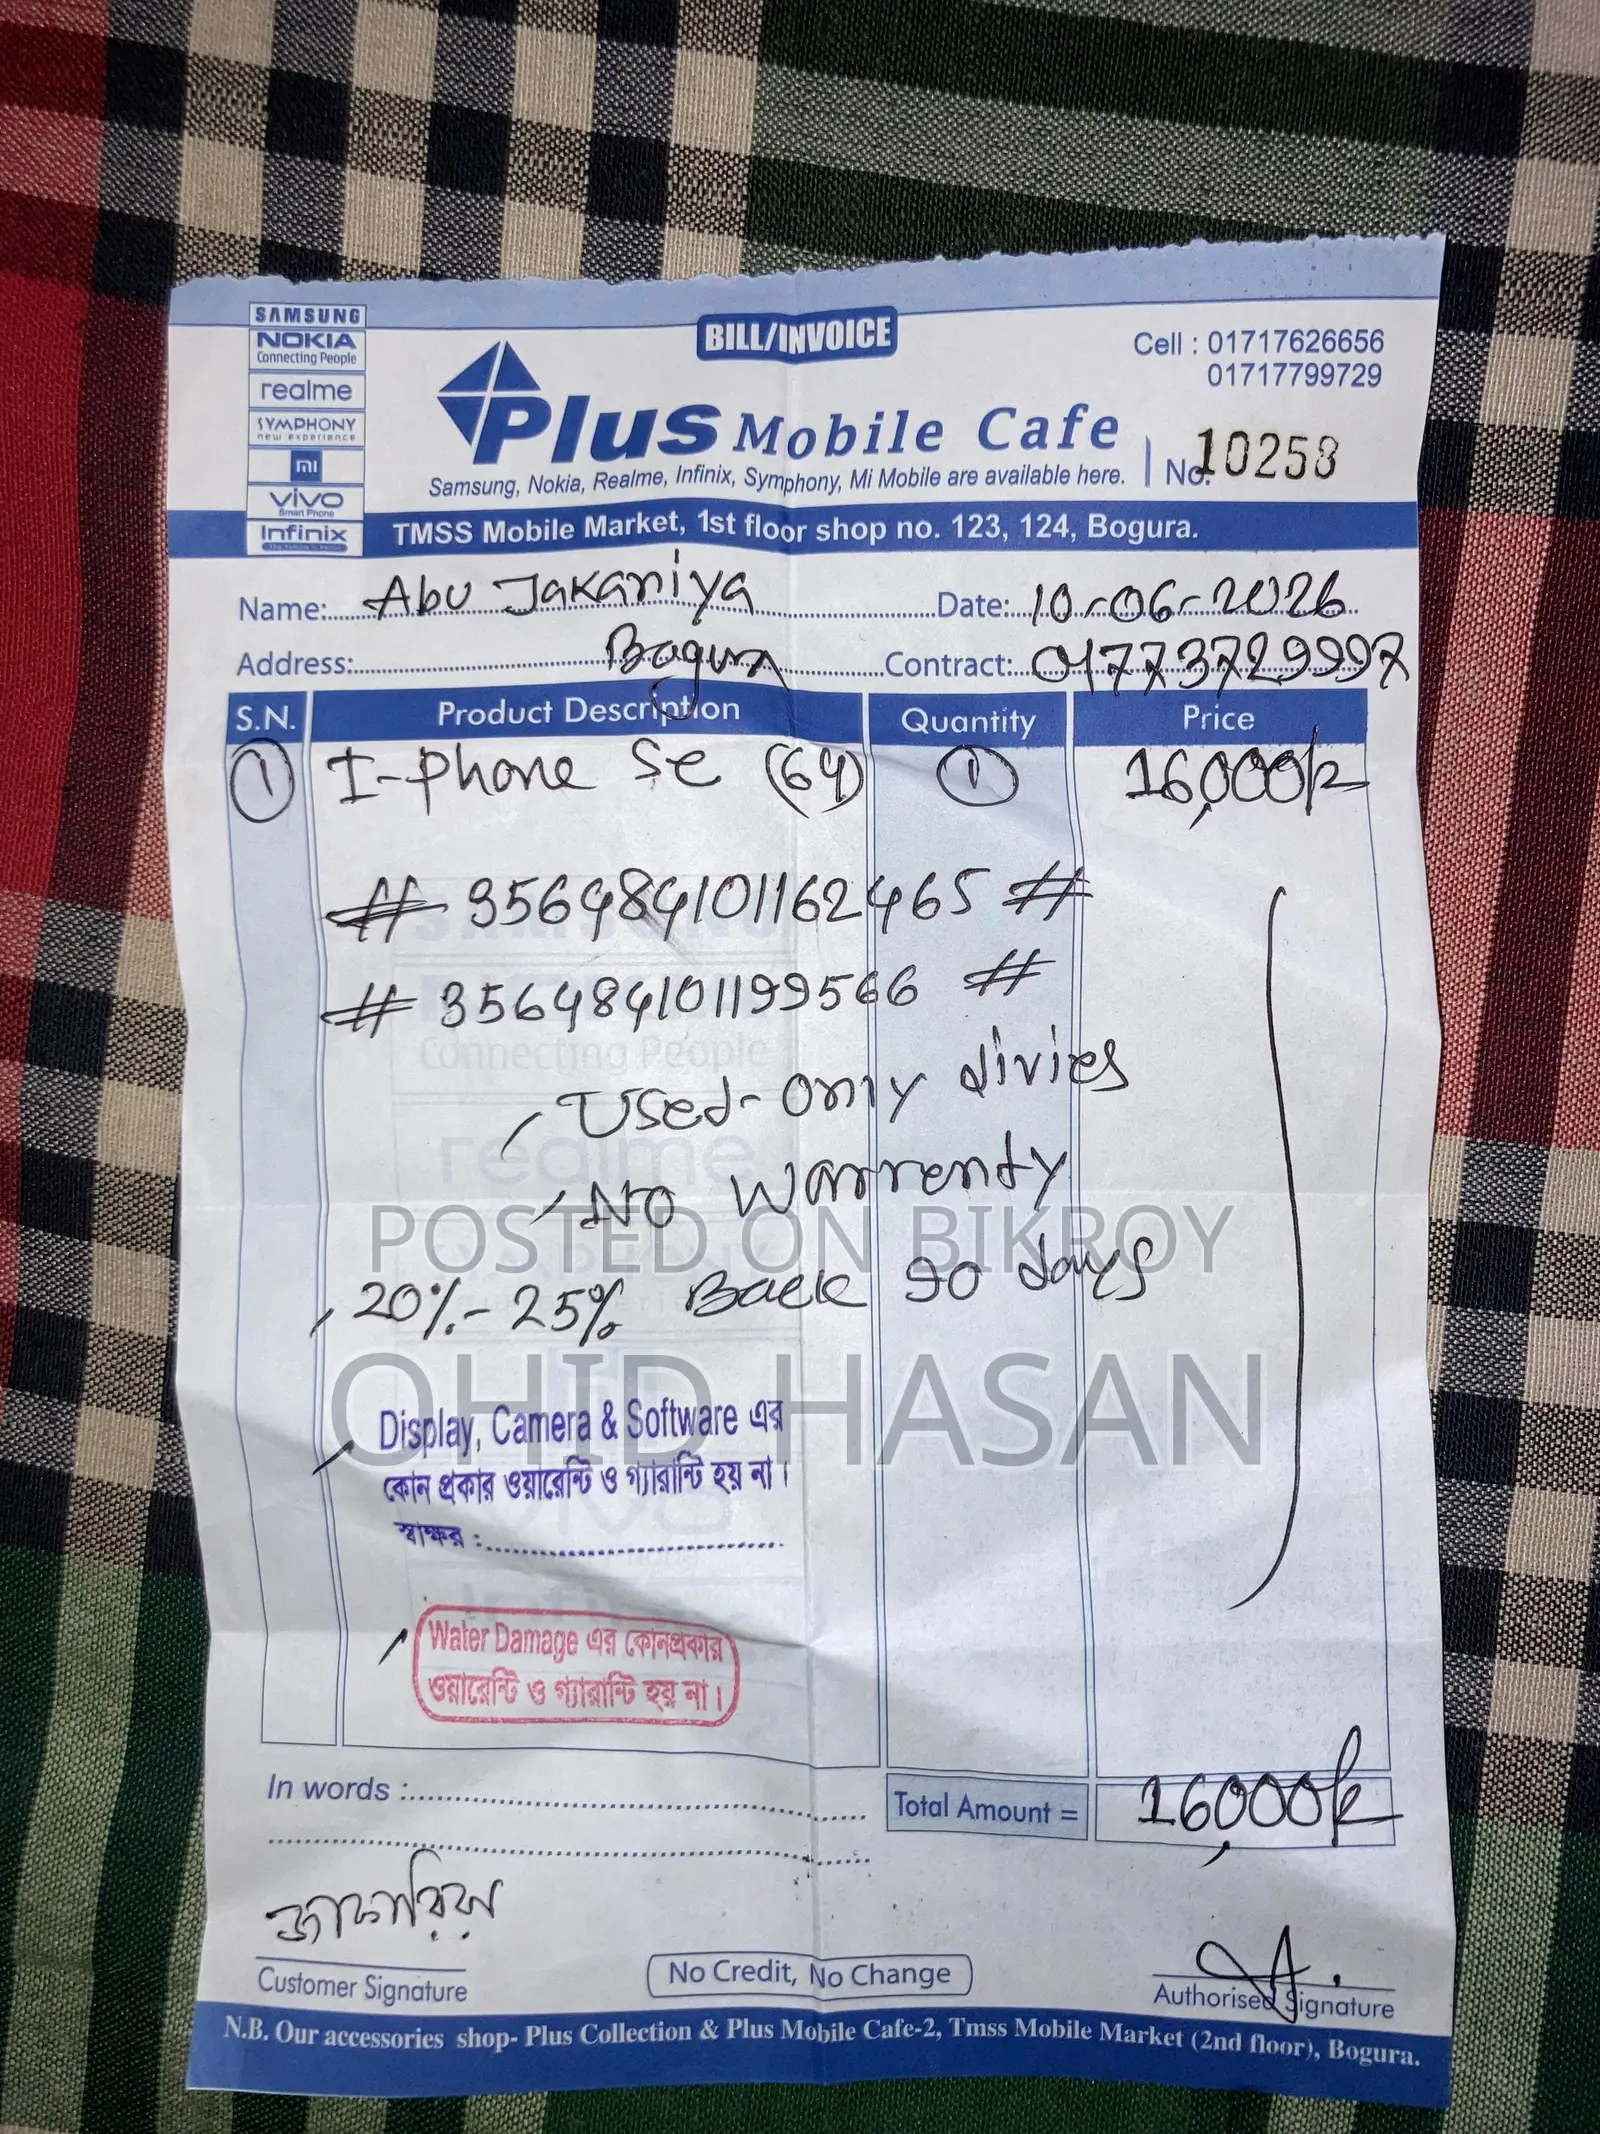 SAMSUNG
NOKIA
Connecting People
realme
SYMPHONY
new experience
mi
vivo
Smart Phone
Infinix
BILL/INVOICE
Cell : 01717626656
01717799729
Plus Mobile Cafe
No. 10258
Samsung, Nokia, Realme, Infinix, Symphony, Mi Mobile are available here.
TMSS Mobile Market, 1st floor shop no. 123, 124, Bogura.
Name: Abu Jakaniya Date: 10-06-2026
Address: Bogura Contract: 01773729997
S.N. Product Description Quantity Price
1 I-phone Se (64) 1 16,000/=
# 356484101162465 #
# 356484101199566 #
Used-only divies
No Warrenty
POSTED ON BIKROY
20%-25% Back 90 days
OHID HASAN
Display, Camera & Software এর
কোন প্রকার ওয়ারেন্টি ও গ্যারান্টি হয় না।
স্বাক্ষর :
Water Damage এর কোনপ্রকার
ওয়ারেন্টি ও গ্যারান্টি হয় না।
In words :
Total Amount = 16,000/=
জাকারিয়া
Customer Signature
No Credit, No Change
Authorised Signature
N.B. Our accessories shop- Plus Collection & Plus Mobile Cafe-2, Tmss Mobile Market (2nd floor), Bogura.